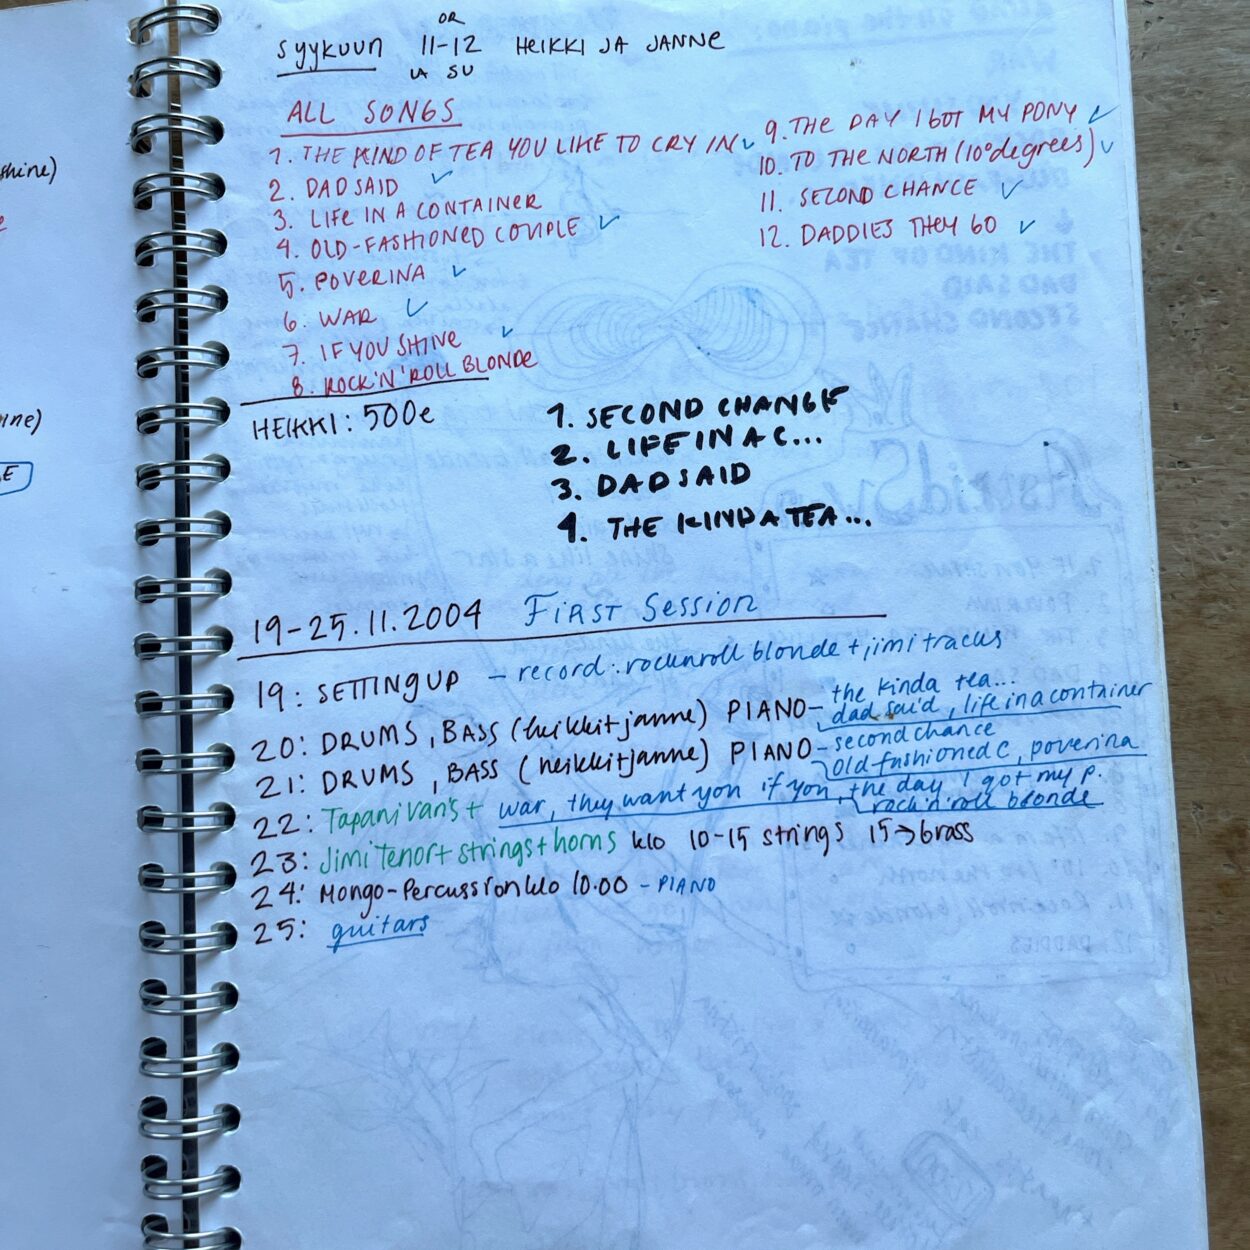 OR
syykuun 11-12 HEIKKI JA JANNE
LA SU
ALL SONGS
1. THE KIND OF TEA YOU LIKE TO CRY IN ✓
2. DAD SAID ✓
3. LIFE IN A CONTAINER
4. OLD-FASHIONED COUPLE ✓
5. POVERINA ✓
6. WAR ✓
7. IF YOU SHINE ✓
8. ROCK'N'ROLL BLONDE
9. THE DAY I GOT MY PONY ✓
10. TO THE NORTH (10° degrees) ✓
11. SECOND CHANCE ✓
12. DADDIES THEY GO ✓
HEIKKI: 500e
1. SECOND CHANGE
2. LIFE IN A C...
3. DAD SAID
4. THE KINDA TEA...
19-25.11.2004 FIRST SESSION
19: SETTING UP - record: rocknroll blonde + jimi tracks
20: DRUMS, BASS (heikki+janne) PIANO- the kinda tea...
dad said, life in a container
21: DRUMS, BASS (heikki+janne) PIANO- second chance
old fashioned c, poverina
22: Tapani Van's + war, they want you if you, the day I got my p.
rock'n'roll blonde
23: Jimi Tenor + strings + horns klo 10-15 strings 15→ brass
24: Mongo-Percussion klo 10.00 - PIANO
25: guitars
shine)
ine)
E